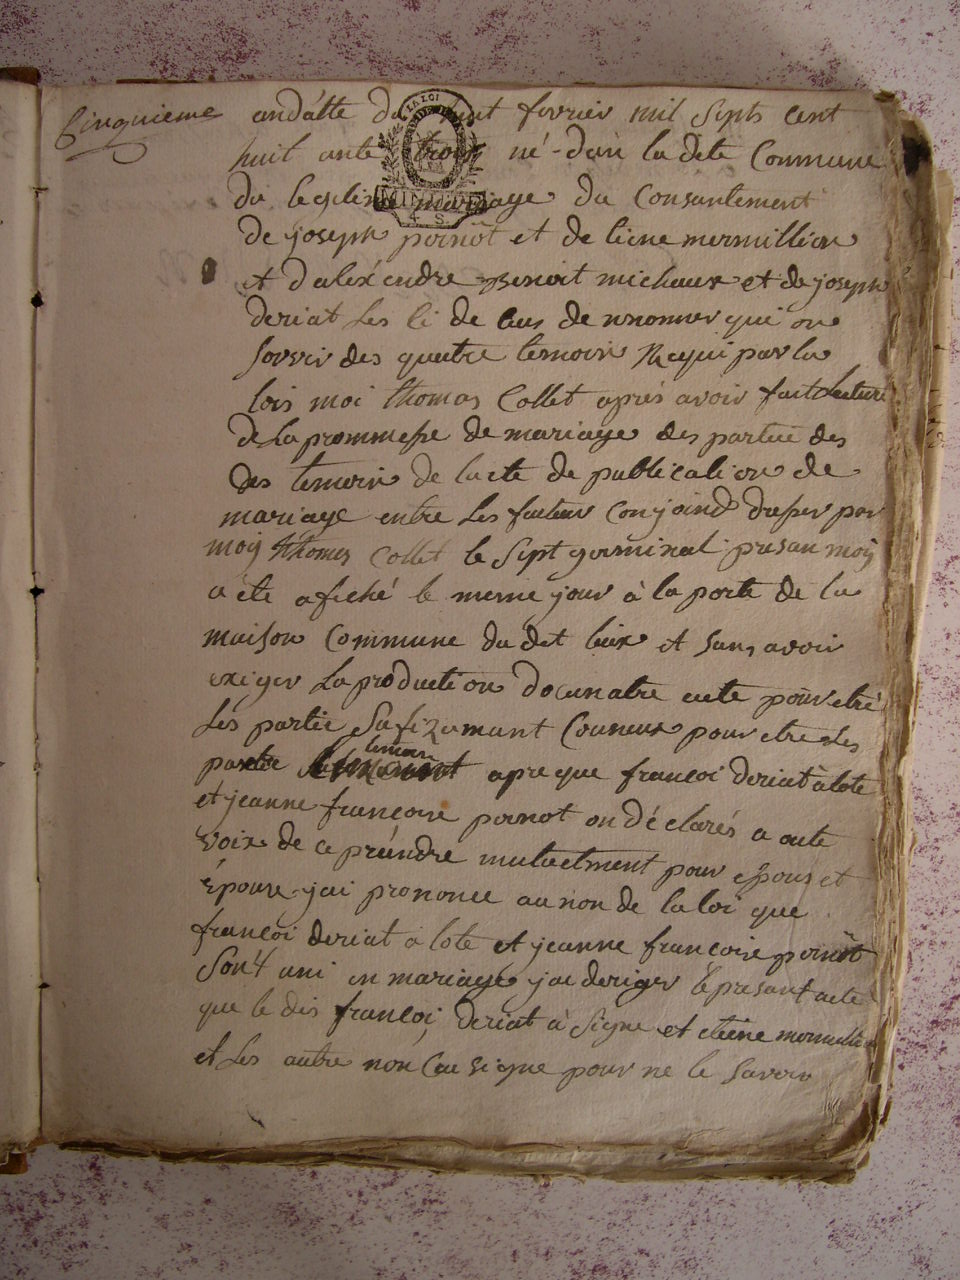 Cinquieme
andátte du huit fevrier mil septs cent
huit ante trois né dan la dete Commune
du mariage du Consantement
de joseph poinot et de tiene mermillion
et dalexendre Benoit michaux et de joseph
deriat les li de nnommer qui on
servir des quatre temoin Requi par la
lois moi thomas Collet aprés avoir fait Lecture
de La prommesse de mariage des partie des
des temoin de lacte de publication de
mariage entre les futeur Conjoind dresser par
moy thomas Collet le Sept germinal presan moy
a éte afiché le meme jour à la porte de la
maison Commune du det lieux et sans avoir
exiger La production docunatre acte pour etre
Les partie Sufizamant Conneux pour etre Les
partie temoin apre que francoi deriat à lote
et jeanne francoise poinot on déclarés a oute
voix de ce préndre mutuelment pour epous et
épouse jai prononce au non de la loi que
francoi deriat a lote et jeanne francoise poinot
Son't uni en mariage jai deriger le presant acte
que le dis francoi deriat à Signe et etiene mermillion
et Les autre non Cau signe pour ne le Savoir
LA LOI
4 S.